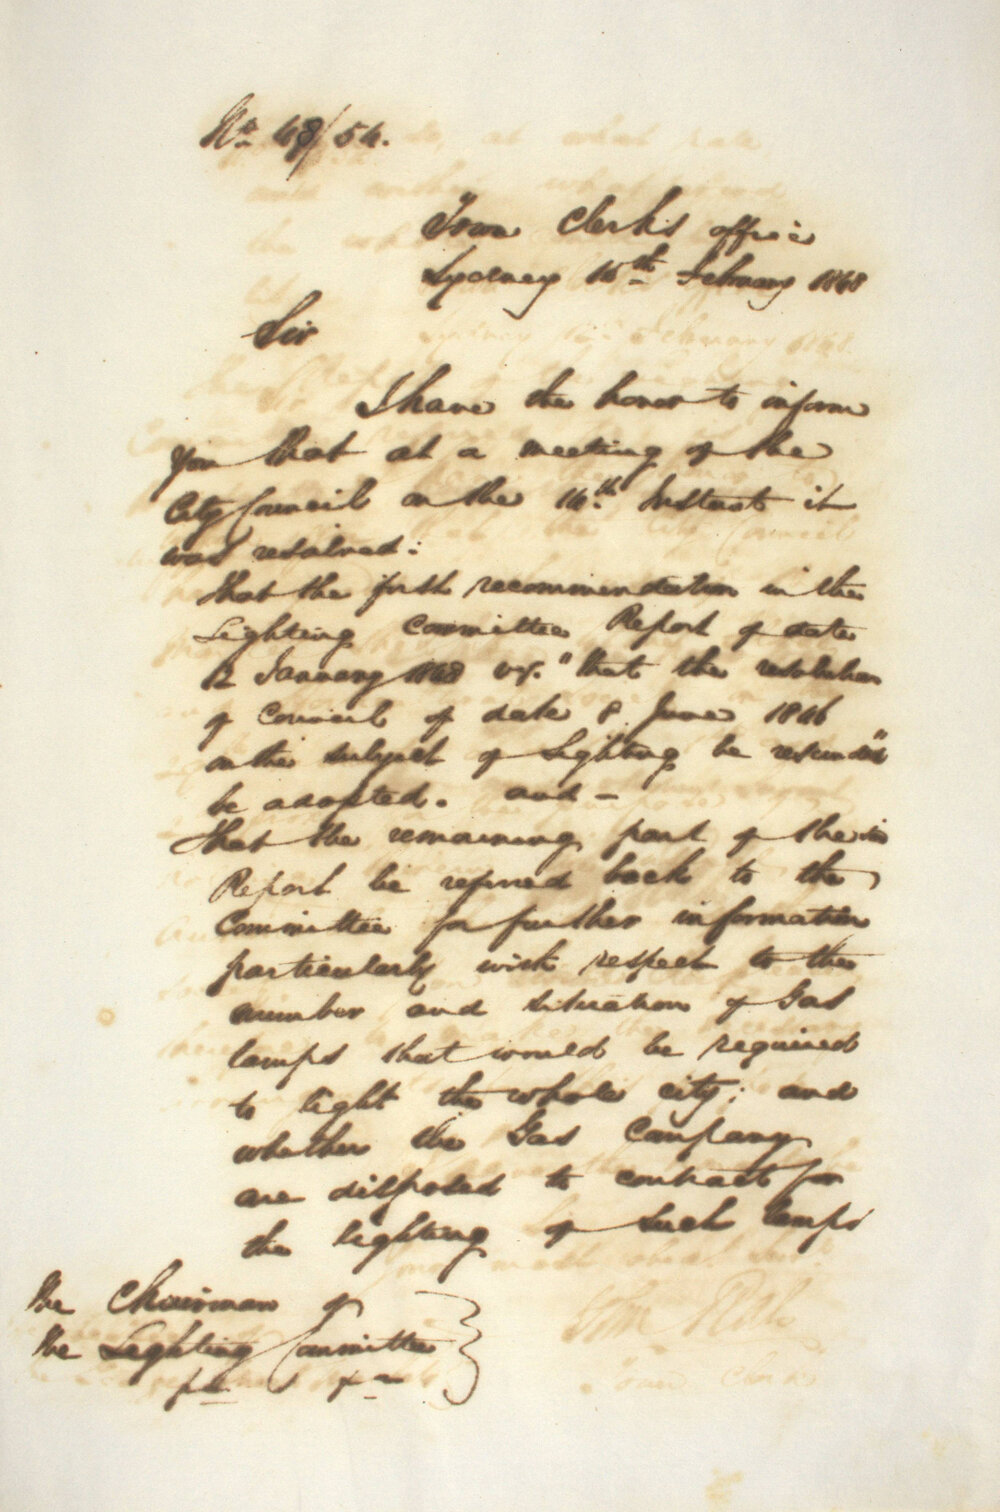 No. 48/54.
Town Clerk's office
Sydney 16th February 1848
Sir
I have the honor to inform
you that at a meeting of the
City Council on the 14th Instant it
was resolved:
That the first recommendation in the
Lighting Committee Report of date
12 January 1848 viz. "That the resolution
of Council of date 8 June 1846
on the subject of Lighting be rescinded"
be adopted. and –
That the remaining part of the
Report be referred back to the
Committee for further information
particularly with respect to the
number and situation of Gas
lamps that would be required
to light the whole city; and
whether the Gas Company
are disposed to contract for
the lighting of such lamps
The Chairman of
the Lighting Committee